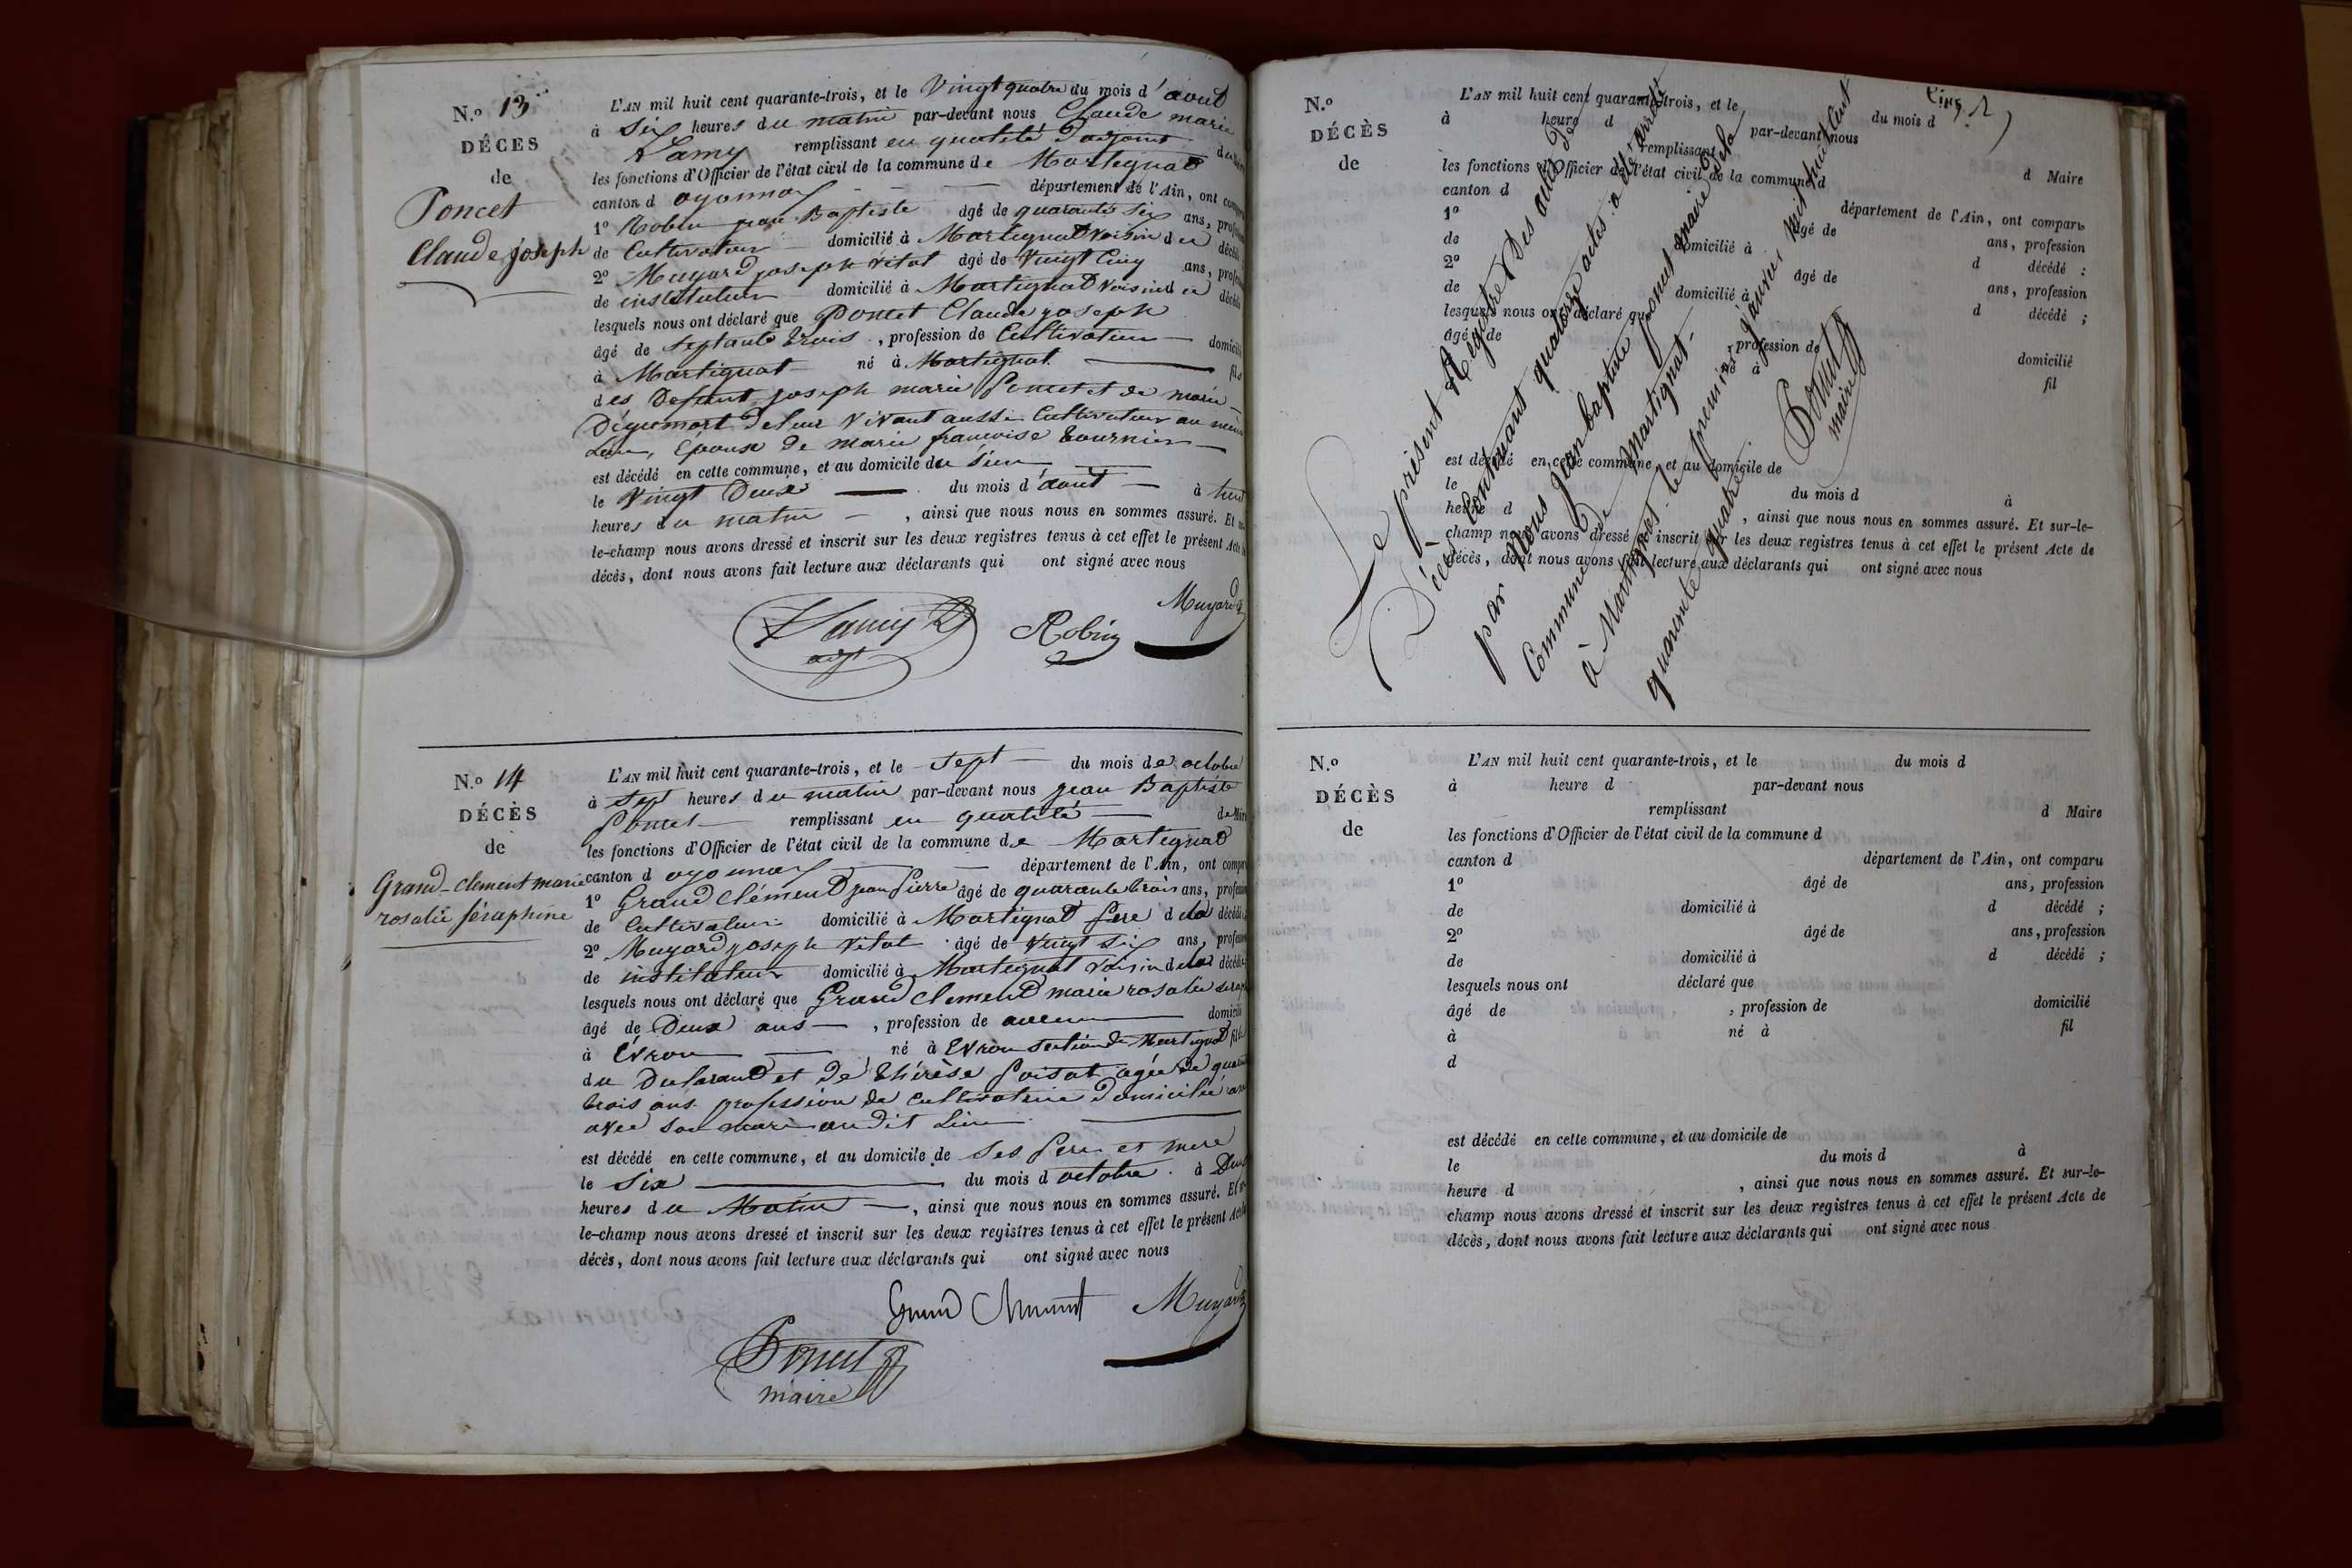 N.º 13
DÉCES
de
Poncet
Claude joseph
L'AN mil huit cent quarante-trois, et le Vingt quatre du mois d'aout
à Six heures du matin par-devant nous Claude marie
Lamy remplissant en qualité d'adjoint
les fonctions d'Officier de l'état civil de la commune de Martignat
canton d oyonnax département de l'Ain, ont
1º Robin jean Baptiste âgé de quarante Six ans,
de Cultivateur domicilié à Martignat Voisin du
2º Muyard joseph Vital âgé de Vingt Cinq ans,
de instituteur domicilié à Martignat Voisin du
lesquels nous ont déclaré que Poncet Claude joseph
âgé de Septante trois , profession de Cultivateur
à Martignat né à Martignat
des Defunt joseph marie Poncet et de marie
de leur Vivant aussi Cultivateur au même
Lieu, Epoux de marie francoise tournier
est décédé en cette commune, et au domicile du Sien
le Vingt Deux du mois d'aout à huit
heures du matin , ainsi que nous nous en sommes assuré. Et
le-champ nous avons dressé et inscrit sur les deux registres tenus à cet effet le présent Acte
décès, dont nous avons fait lecture aux déclarants qui ont signé avec nous
Lamy Robin Muyard
adjt
N.º 14
DÉCÈS
de
Grand-clement marie
rosalie séraphine
L'AN mil huit cent quarante-trois, et le Sept du mois de octobre
à Sept heures du matin par-devant nous jean Baptiste
Poncet remplissant en qualité de
les fonctions d'Officier de l'état civil de la commune de Martignat
canton d oyonnax département de l'Ain, ont
1º Grand Clément jean Pierre âgé de quarante trois ans,
de Cultivateur domicilié à Martignat Pere de la
2º Muyard joseph Vital âgé de Vingt Six ans,
de instituteur domicilié à Martignat Voisin de la
lesquels nous ont déclaré que Grand clement marie rosalie
âgé de Deux ans , profession de aucune
à Evron né à Evron Section de Martignat
du Déclarant et de thérèse Poisat agée de
trois ans profession de cultivatrice Domiciliée
avec Son mari au dit Lieu
est décédé en cette commune, et au domicile de Ses Pere et mere
le Six du mois d octobre à Deux
heures du Matin , ainsi que nous nous en sommes assuré. Et
le-champ nous avons dressé et inscrit sur les deux registres tenus à cet effet le présent Acte
décès, dont nous avons fait lecture aux déclarants qui ont signé avec nous
Grand Clement Muyard
Poncet
maire
N.º
DÉCÈS
de
L'AN mil huit cent quarante-trois, et le du mois d
à heure d par-devant nous
remplissant d Maire
les fonctions d'Officier de l'état civil de la commune d
canton d département de l'Ain, ont comparu
1º âgé de ans, profession
de domicilié à d décédé ;
2º âgé de ans, profession
de domicilié à d décédé ;
lesquels nous ont déclaré que
âgé de , profession de domicilié
à né à fil
est décédé en cette commune, et au domicile de
le du mois d à
heure d , ainsi que nous nous en sommes assuré. Et sur-le-
champ nous avons dressé et inscrit sur les deux registres tenus à cet effet le présent Acte de
décès, dont nous avons fait lecture aux déclarants qui ont signé avec nous
Le présent Registre Des actes De
Décès Contenant quatorze actes a été arrêté
par Nous jean baptiste poncet maire De la
Commune de Martignat
à Martignat le premier janvier mil huit Cent
quarante quatre.
Poncet
maire
N.º
DÉCÈS
de
L'AN mil huit cent quarante-trois, et le du mois d
à heure d par-devant nous
remplissant d Maire
les fonctions d'Officier de l'état civil de la commune d
canton d département de l'Ain, ont comparu
1º âgé de ans, profession
de domicilié à d décédé ;
2º âgé de ans, profession
de domicilié à d décédé ;
lesquels nous ont déclaré que
âgé de , profession de domicilié
à né à fil
d
est décédé en cette commune, et au domicile de
le du mois d à
heure d , ainsi que nous nous en sommes assuré. Et sur-le-
champ nous avons dressé et inscrit sur les deux registres tenus à cet effet le présent Acte de
décès, dont nous avons fait lecture aux déclarants qui ont signé avec nous